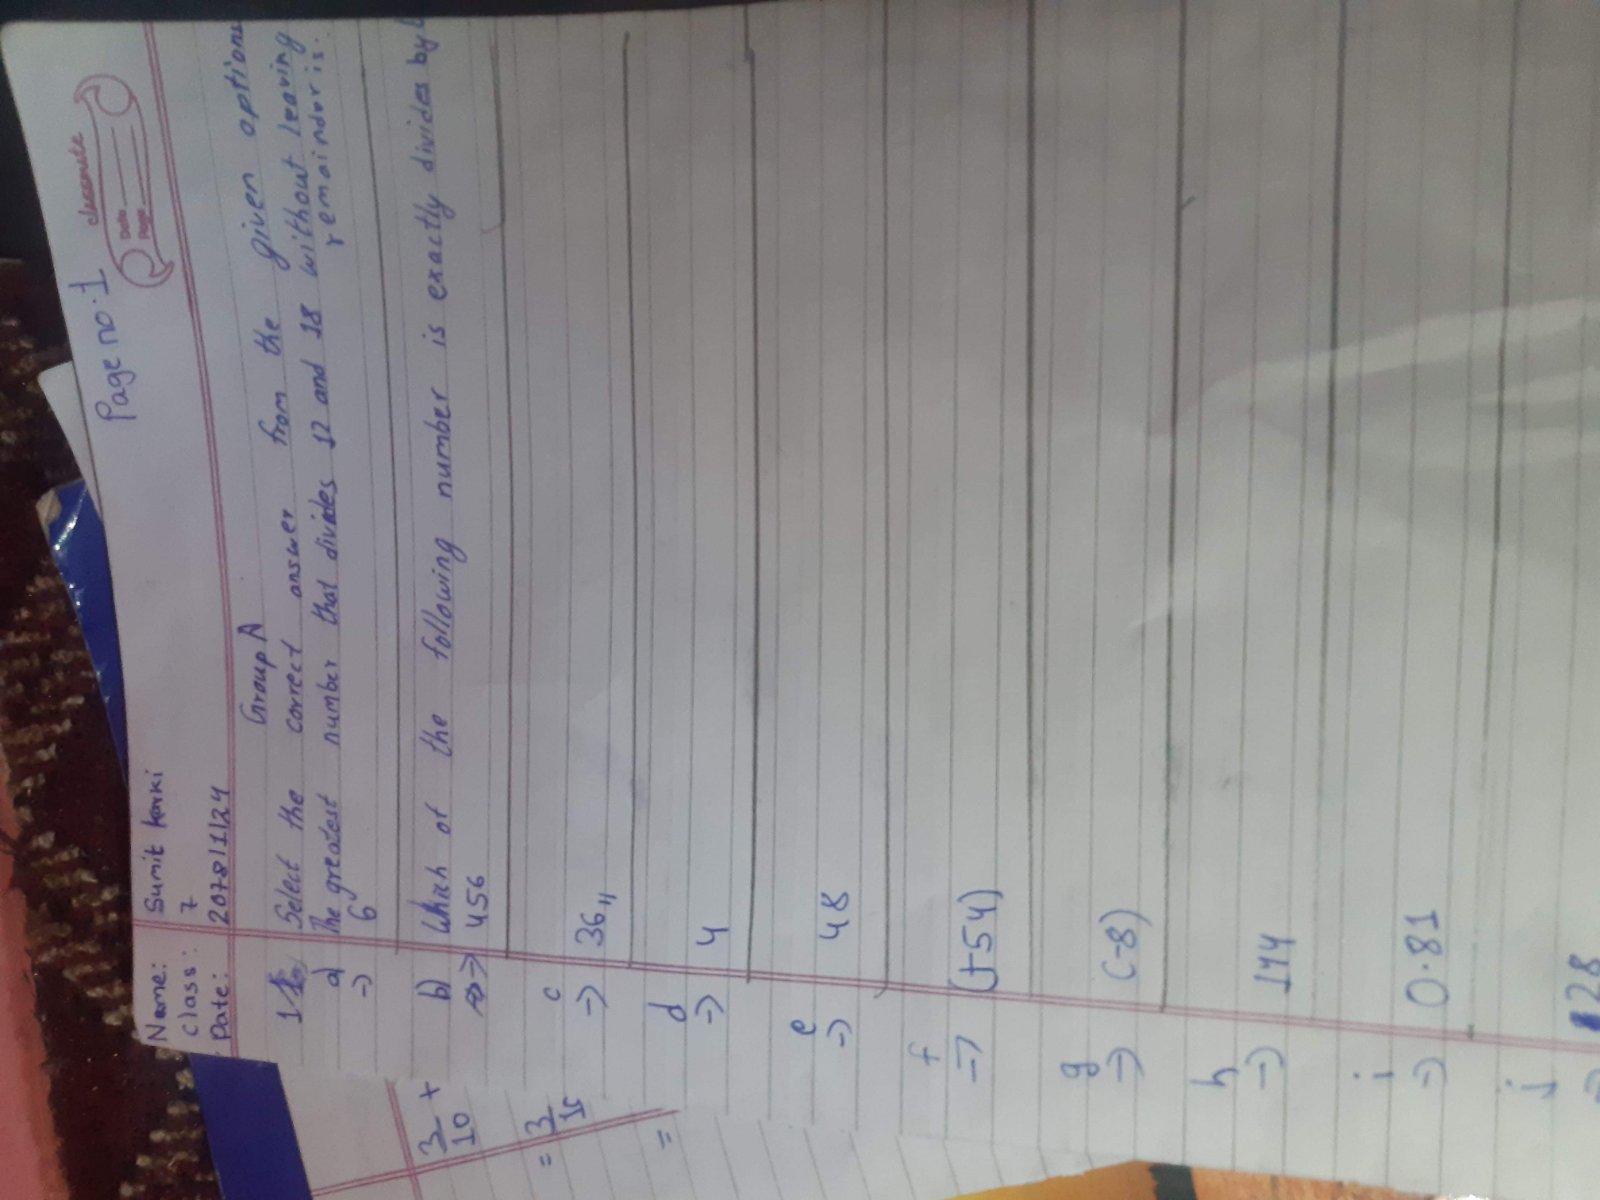 Page no. 1
classmate
Date
Page
Name: Sumit Karki
Class: 7
Date: 2078/1/24
Group A
1. Select the correct answer from the given options
a) The greatest number that divides 12 and 18 without leaving
remaindor is.
=> 6
b) Which of the following number is exactly divides by
=> 456
c
=> 36,,
d
=> 4
e
=> 48
f
=> (+54)
g
=> (-8)
h
=> 144
i
=> 0.81
j
=> 128
3/10 +
= 3/15
=